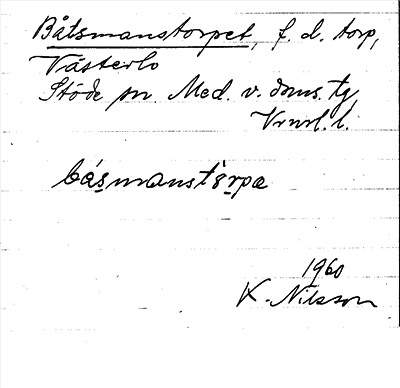 Båtsmanstorpet, f. d. torp,
Västerlo
Stöde sn Med. v. doms. tg
Vrnrl. l.
båsmanstórpa
1960
K. Nilsson